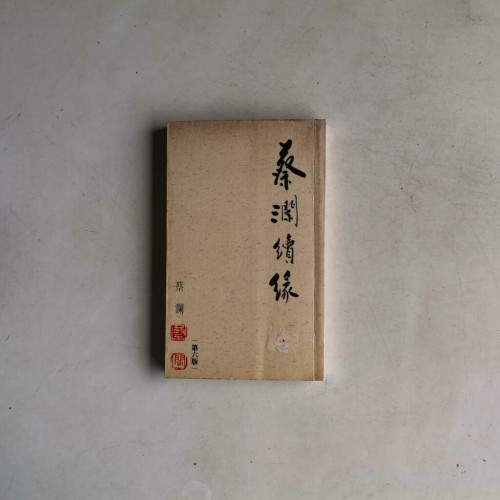 蔡瀾續緣
蔡瀾
第六版